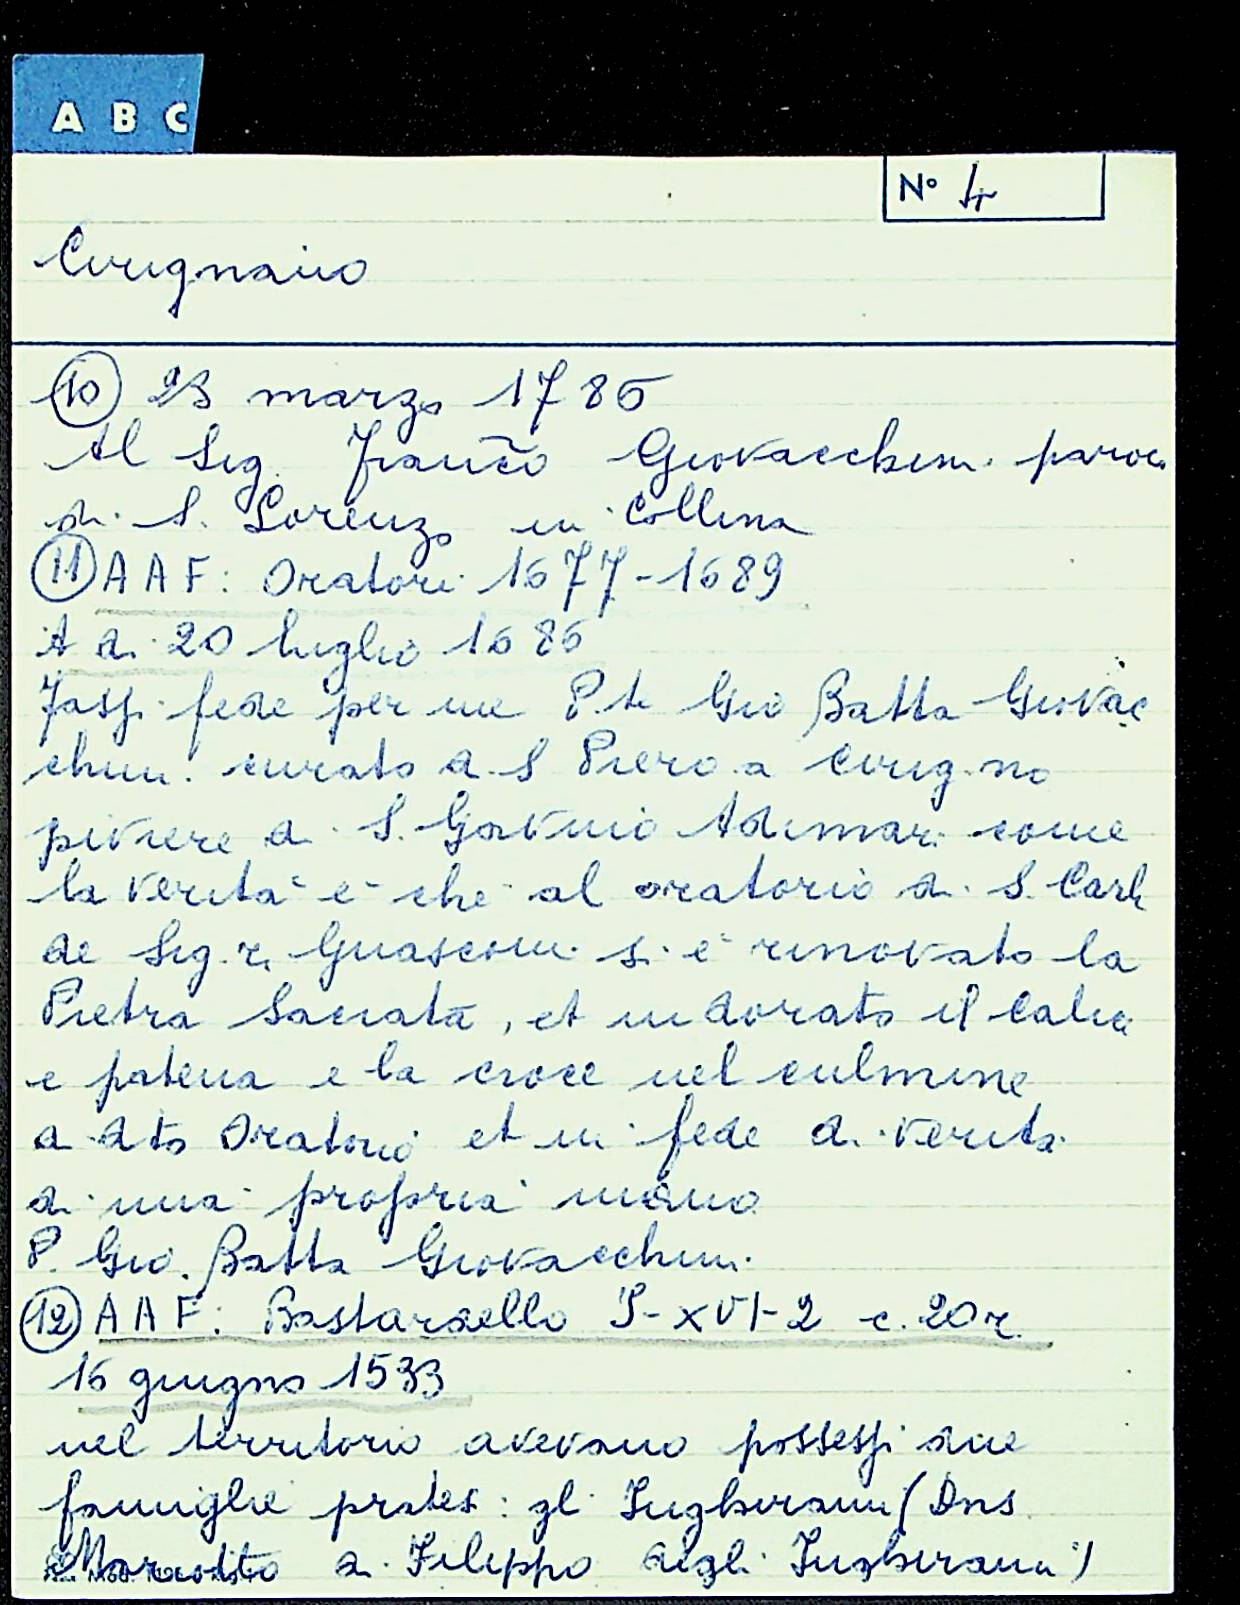 A B C
Nº 4
Cirignano
10 23 marzo 1786
Al Sig. Franc̃o Giovacchini paroco
di S. Lorenzo in Collina
11 A A F: Oratori 1677-1689
A di 20 luglio 1686
Fassi fede per me P.te Gio Batta Giovac
chini curato a S Piero a Cirignano
piviere di S. Gavino Adimari come
la verità è che al oratorio di S. Carlo
de Sig.ri Guasconi si è rinovato la
Pietra Sacrata, et indorato il Calice
e patena e la croce nel culmine
a dto Oratorio et in fede di verità
di mia propria mano
P. Gio. Batta Giovacchini
12 A A F: Bastardello I-XVI-2 c. 20r.
16 giugno 1533
nel territorio avevano possessi due
famiglie pratesi: gl'Inghirami (Dns
Marcotto di Filippo degli Inghirami)